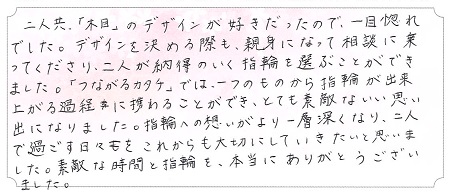 二人共、「木目」のデザインが好きだったので、一目惚れ
でした。デザインを決める際も、親身になって相談に乗
ってくださり、二人が納得のいく指輪を選ぶことができ
ました。「つながるカタチ」では、一つのものから指輪が出来
上がる過程に携わることができ、とても素敵ないい思い
出になりました。指輪への想いがより一層深くなり、二人
で過ごす日々をこれからも大切にしていきたいと思いま
した。素敵な時間と指輪を、本当にありがとうござい
ました。